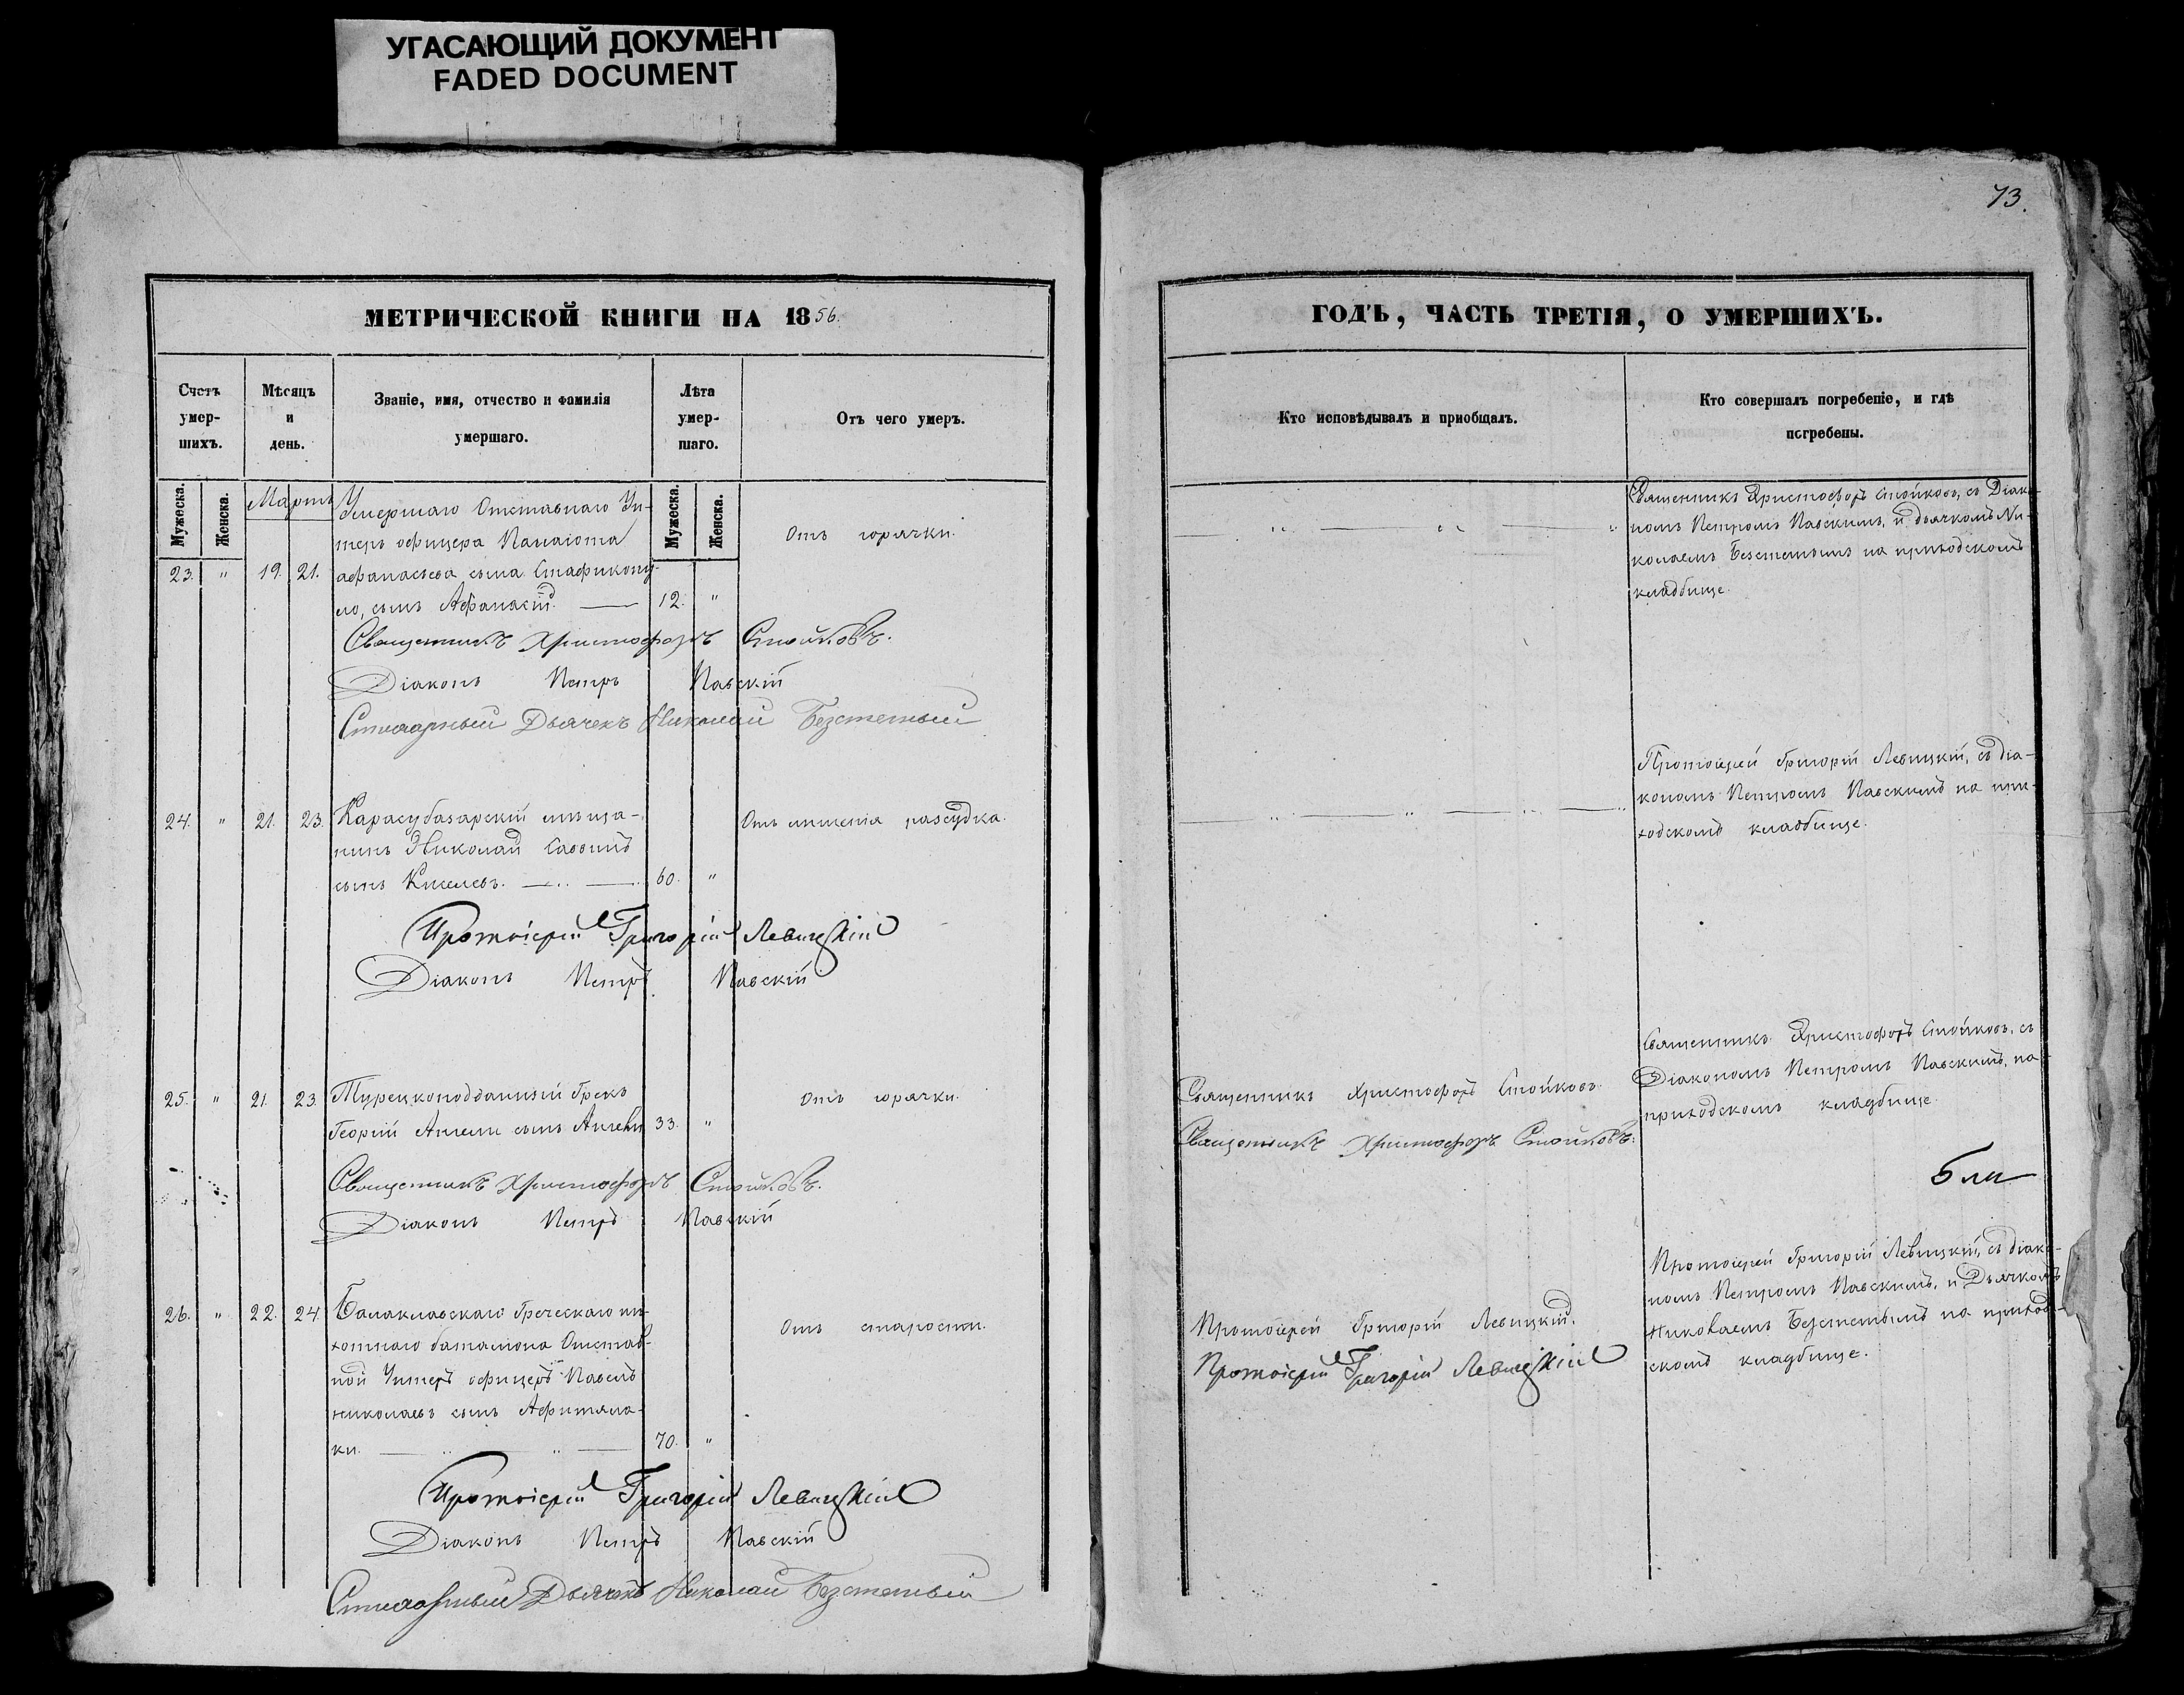 УГАСАЮЩИЙ ДОКУМЕНТ
FADED DOCUMENT
МЕТРИЧЕСКОЙ КНИГИ НА 1856.
Счетъ
умер-
шихъ.
Мѣсяцъ
и
день.
Званіе, имя, отчество и фамилія
умершаго.
Лѣта
умер-
шаго.
Отъ чего умеръ.
Мужеска.
Женска.
Мартъ
Мужеска.
Женска.
Умершаго Отставнаго Ун-
теръ офицера Панаіота
23. " 19. 21. афанасьева сына Стафикопу-
ло, сынъ Афанасій. 12. "
Отъ горячки.
Священникъ Христофоръ Стойковъ.
Діаконъ Петръ Павскій
Стихарный Дьячекъ Николай Безстетный
24. " 21. 23. Карасубазарскій мѣща-
нинъ Николай Саввинъ
сынъ Киселевъ. 60. "
Отъ лишенія разсудка.
Протоіерей Григорій Левицкій
Діаконъ Петръ Павскій
25. " 21. 23. Турецкоподданный Грекъ
Георгій Ангели сынъ Ангели 33. "
Отъ горячки.
Священникъ Христофоръ Стойковъ.
Діаконъ Петръ Павскій
26. " 22. 24. Балаклавскаго Греческаго пѣ-
хотнаго баталіона Отстав-
ной Унтеръ офицеръ Павелъ
Николаевъ сынъ
ки. 70. "
Отъ старости.
Протоіерей Григорій Левицкій
Діаконъ Петръ Павскій
Стихарный Дьячекъ Николай Безстетный
73.
ГОДЪ, ЧАСТЬ ТРЕТІЯ, О УМЕРШИХЪ.
Кто исповѣдывалъ и пріобщалъ.
Кто совершалъ погребеніе, и гдѣ
погребены.
Священникъ Христофоръ Стойковъ, съ Діако-
номъ Петромъ Павскимъ, и дьячкомъ Ни-
колаемъ Безстетнымъ на приходскомъ
кладбище.
Протоіерей Григорій Левицкій, съ діа-
кономъ Петромъ Павскимъ на при-
ходскомъ кладбище.
Священникъ Христофоръ Стойковъ.
Священникъ Христофоръ Стойковъ.
Священникъ Христофоръ Стойковъ, съ
Діакономъ Петромъ Павскимъ, на
приходскомъ кладбище.
Протоіерей Григорій Левицкій.
Протоіерей Григорій Левицкій
Протоіерей Григорій Левицкій, съ діако-
номъ Петромъ Павскимъ, и Дьячкомъ
Николаемъ Безстетнымъ на приход-
скомъ кладбище.